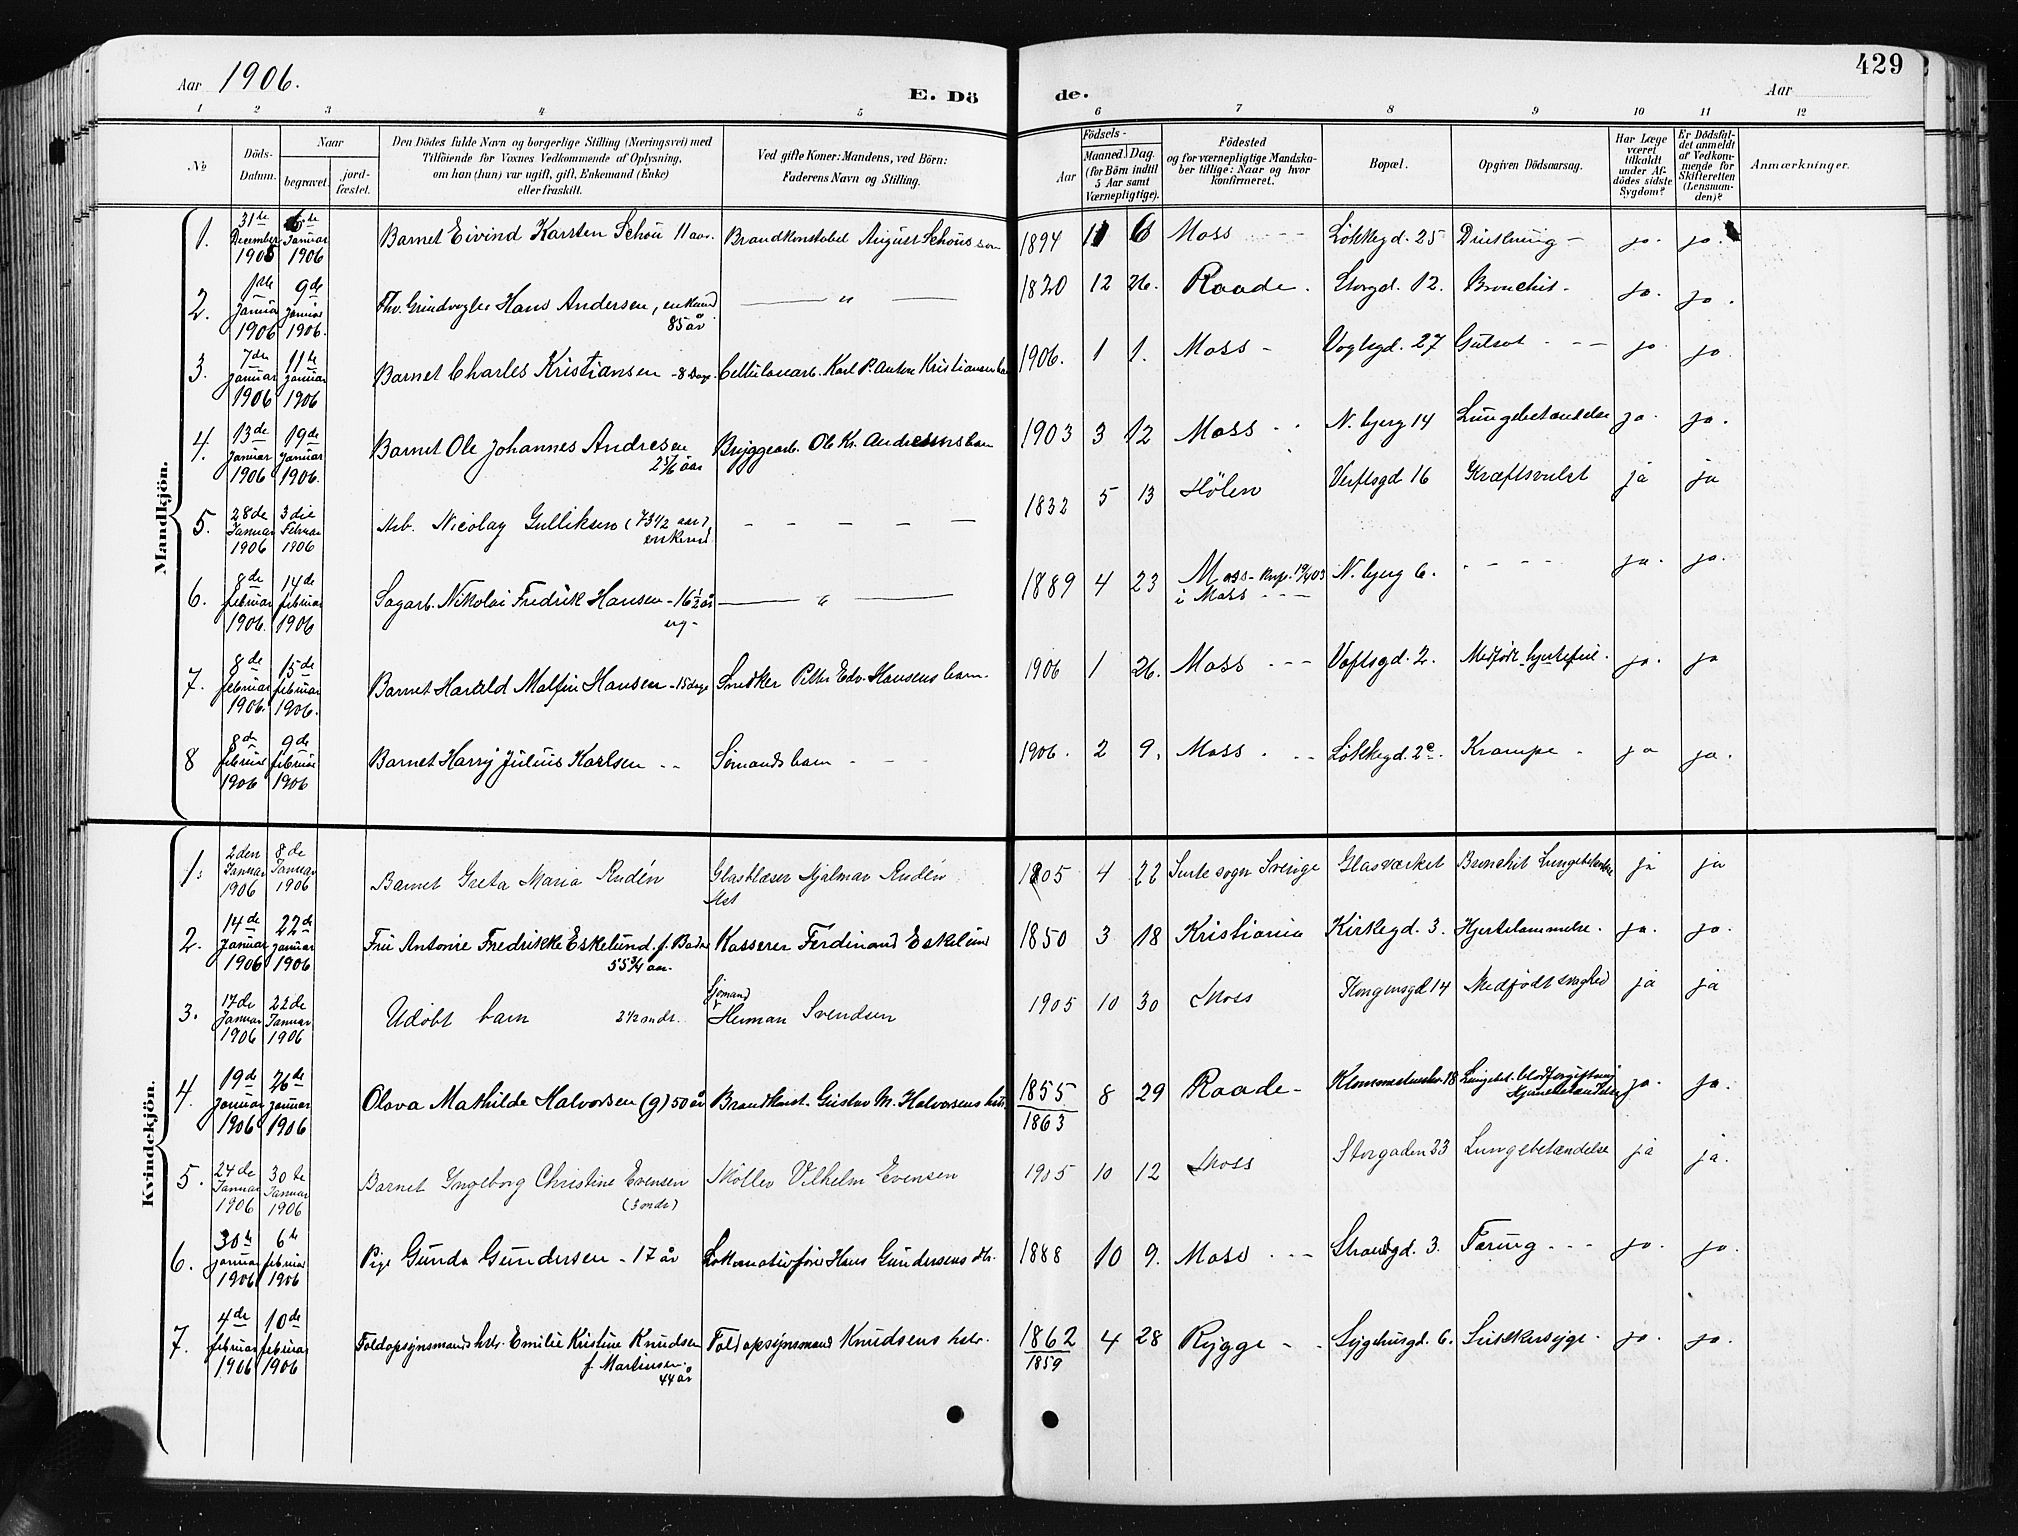 Aar 1906.
E. Dö
de.
Aar
429
1 2 3 4 5 6 7 8 9 10 11 12
No
Döds-Datum.
Naar
begravet.
jord-fæstet.
Den Dödes fulde Navn og borgerlige Stilling (Næringsvei) med Tilföiende for Voxnes Vedkommende af Oplysning, om han (hun) var ugift, gift, Enkemand (Enke) eller fraskilt.
Ved gifte Koner: Mandens, ved Börn: Faderens Navn og Stilling.
Födsels-
Aar
Maaned. Dag.
(for Börn indtil 5 Aar samt Værnepligtige).
Födested
og for værnepligtige Mandska-
ber tillige: Naar og hvor
konfirmeret.
Bopæl.
Opgiven Dödsaarsag.
Har Læge været tilkaldt under Af-dödes sidste Sygdom?
Er Dödsfal-det anmeldt af Vedkom-mende for Skifteretten (Lensman-den)?
Anmærkninger.
Mandkjön.
1. 31te December 1905 6te Januar 1906 Barnet Eivind Karsten Schou 11 aar. Brandkonstabel August Schous søn 1894 11 6 Moss Løkkegd. 25 ja. ja.
2. 1ste Januar 1906 9de Januar 1906. Fhv. Hans Andersen, enkemd 85 år — " — 1820 12 26. Raade. Storgd. 12. Bronchit. ja. ja.
3. 7de Januar 1906 11te Januar 1906 Barnet Charles Kristiansen - 8 Dage. Cellulosearb. Karl P. Anton Kristiansens barn 1906. 1 1. Moss - Vogtsgd. 27 Gulsot ja. ja
4. 13de Januar 1906 19de Januar 1906. Barnet Ole Johannes Andresen 2 5/6 aar Bryggearb. Ole Kr. Andresens barn 1903 3 12 Moss N. bjerg 14 Lungebetændelse ja. ja.
5. 28de Januar 1906 3die Februar 1906 Arb. Nicolay Gulliksen (73 1/2 aar) enkemd. - - - - - 1832 5 13 Hølen Verftsgd 16 Kræftsvulst ja ja
6. 8de februar 1906. 14de februar 1906 Sagarb. Nikolai Fredrik Hansen - 16 1/2 år ug- — " — 1889 4 23 Moss - i Moss N. bjerg 6. - - - - ja. ja.
7. 8de februar 1906. 15de februar 1906. Barnet Harald Hansen - 15 dage Snedker Petter Edv. Hansens barn. 1906 1 26. Moss - - - 2. Medfødt hjertefeil. ja. ja
8 8de februar 1906 9de februar 1906 Barnet Harry Julius Karlsen - - Sømands barn - - - 1906. 2 9. Moss. Løkkegd. 2c. Krampe - ja ja.
Kvindekjön.
1. 2den Januar 1906 8de Januar 1906 Barnet Greta Maria Rudén Glasblæser Hjalmar Rudén 1905 4 22 sogn Sverige Glasværket Bronchit ja ja
2. 14de Januar 1906 22de Januar 1906 Fru Antonie Fredrikke Eskelund. 55 3/4 aar. Kasserer Ferdinand Eskelund 1850 3 18 Kristiania Kirkegd. 3. Hjertelammelse. ja. ja.
3. 17de Januar 1906 22de Januar 1906 Udøbt barn 2 1/2 mdr. Sjømand Herman Svendsen 1905 10 30 Moss Kongensgd 14 Medfødt svaghed ja ja
4. 19de Januar 1906 26de Januar 1906 Olava Mathilde Halvorsen (g) 50 år Brandkonst. Gustav M. Halvorsens hstr. 1855 1863 8 29 Raade - 18 blodforgiftning Hjernebetændelse ja. ja.
5. 24de Januar 1906 30te Januar 1906 Barnet Ingeborg Christine Evensen (3 mdr) Møller Vilhelm Evensen 1905 10 12 Moss Storgaden 33 Lungebetændelse ja ja.
6. 30te januar 1906 6te februar 1906 Pige Gunda Gundersen - 17 år Lokomotivfører Hans Gundersens dtr. 1888 10 9. Moss - - - Strandgd. 3. Tæring - - - ja. ja.
7. 4de februar 1906 10de februar 1906 Toldopsynsmands hstr. Emilie Kristine Knudsen f. Martinsen. 44 år Toldopsynsmand Knudsens hstr. 1862 1859 4 28 Rygge - Sygehusgd. 6. Sukkersyge. ja. ja.